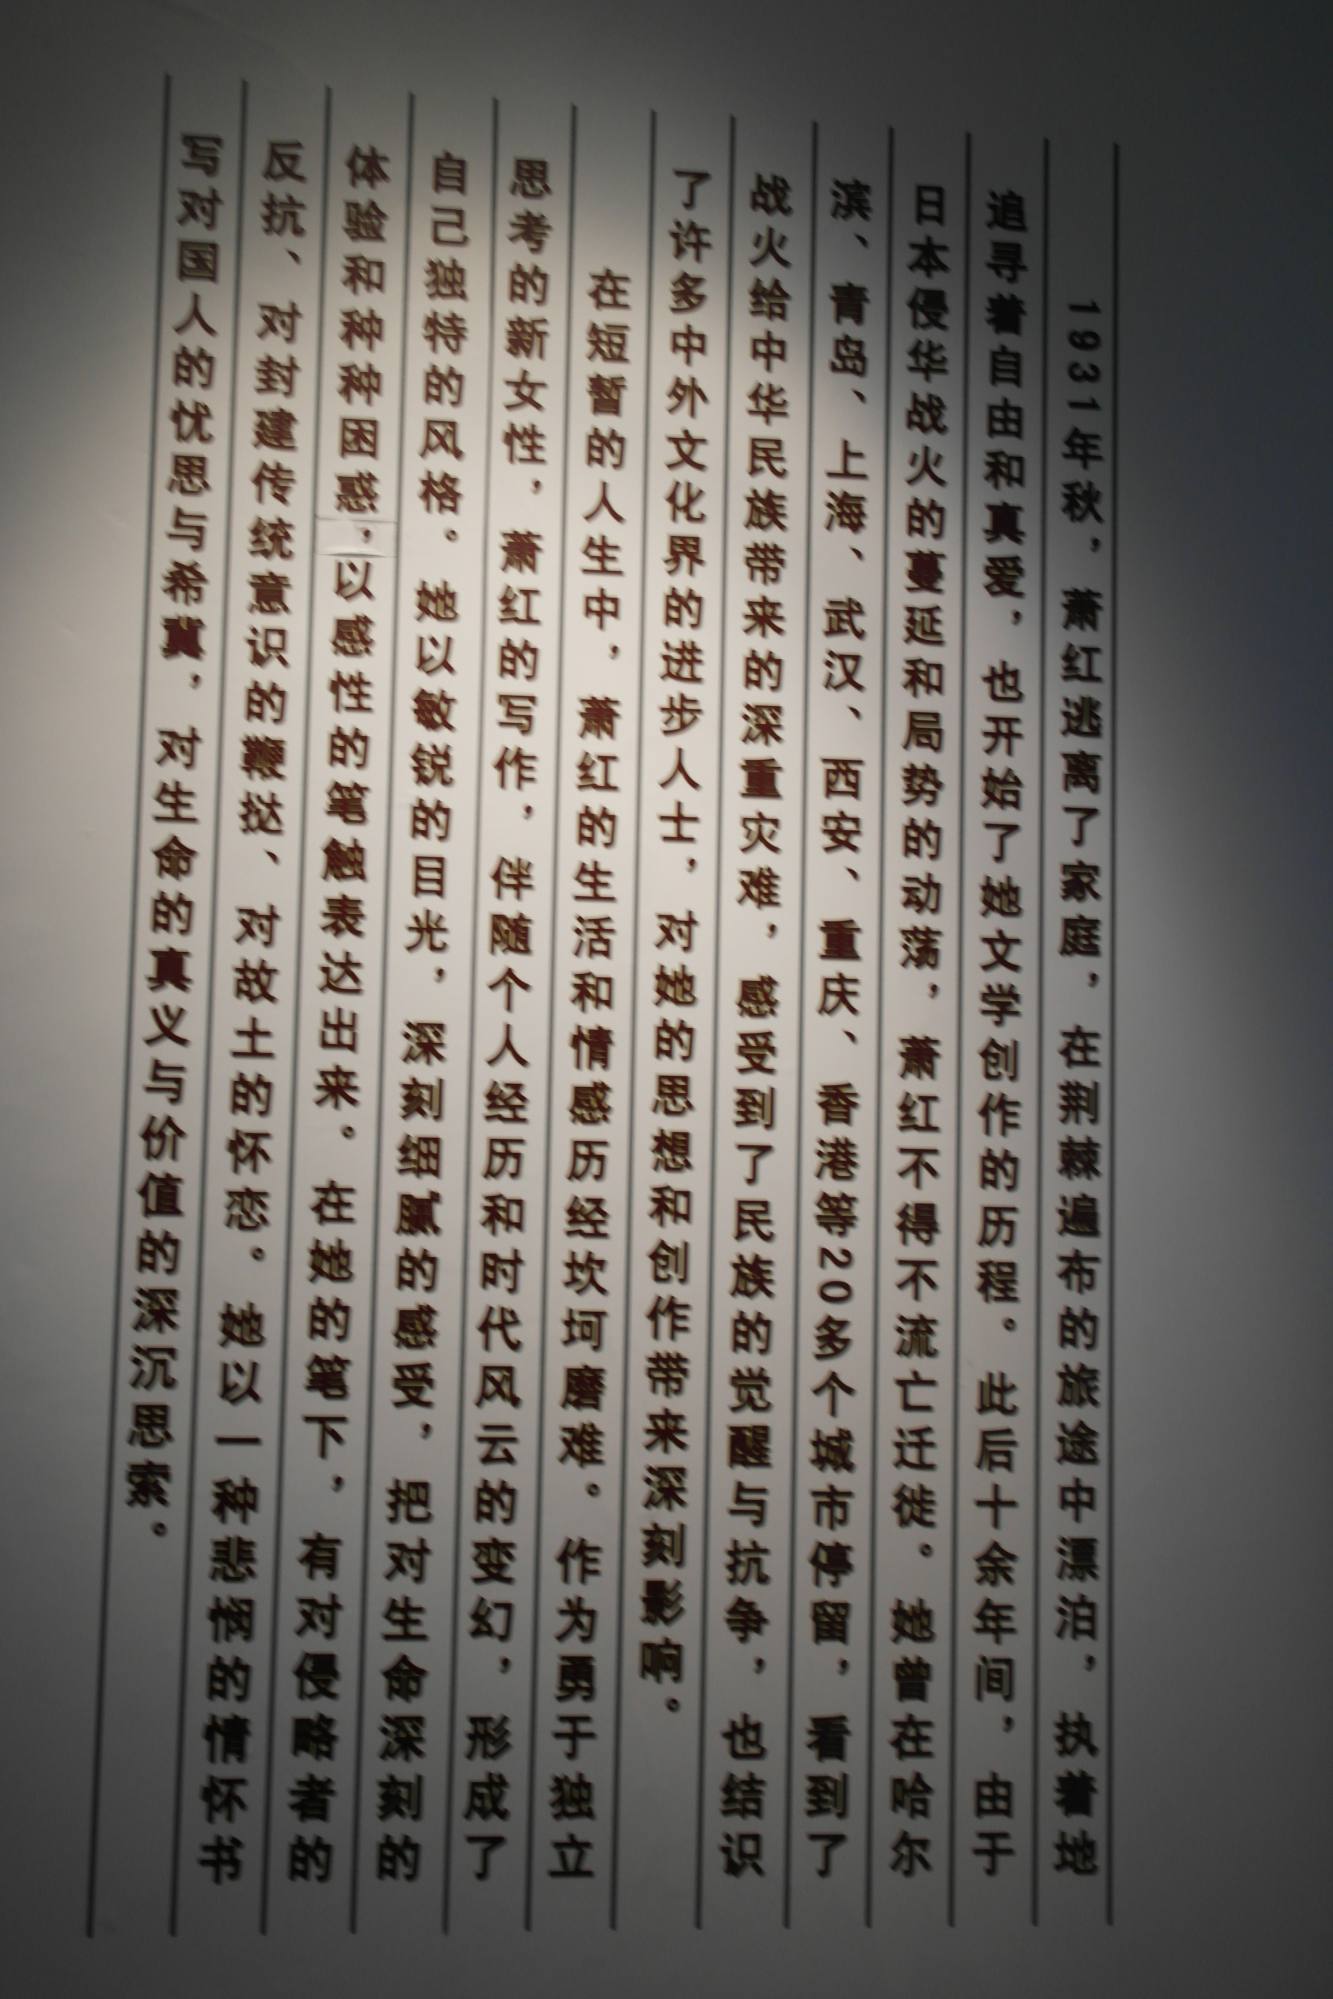 1931年秋，萧红逃离了家庭，在荆棘遍布的旅途中漂泊，执着地
追寻着自由和真爱，也开始了她文学创作的历程。此后十余年间，由于
日本侵华战火的蔓延和局势的动荡，萧红不得不流亡迁徙。她曾在哈尔
滨、青岛、上海、武汉、西安、重庆、香港等20多个城市停留，看到了
战火给中华民族带来的深重灾难，感受到了民族的觉醒与抗争，也结识
了许多中外文化界的进步人士，对她的思想和创作带来深刻影响。
在短暂的人生中，萧红的生活和情感历经坎坷磨难。作为勇于独立
思考的新女性，萧红的写作，伴随个人经历和时代风云的变幻，形成了
自己独特的风格。她以敏锐的目光，深刻细腻的感受，把对生命深刻的
体验和种种困惑，以感性的笔触表达出来。在她的笔下，有对侵略者的
反抗、对封建传统意识的鞭挞、对故土的怀恋。她以一种悲悯的情怀书
写对国人的忧思与希冀，对生命的真义与价值的深沉思索。